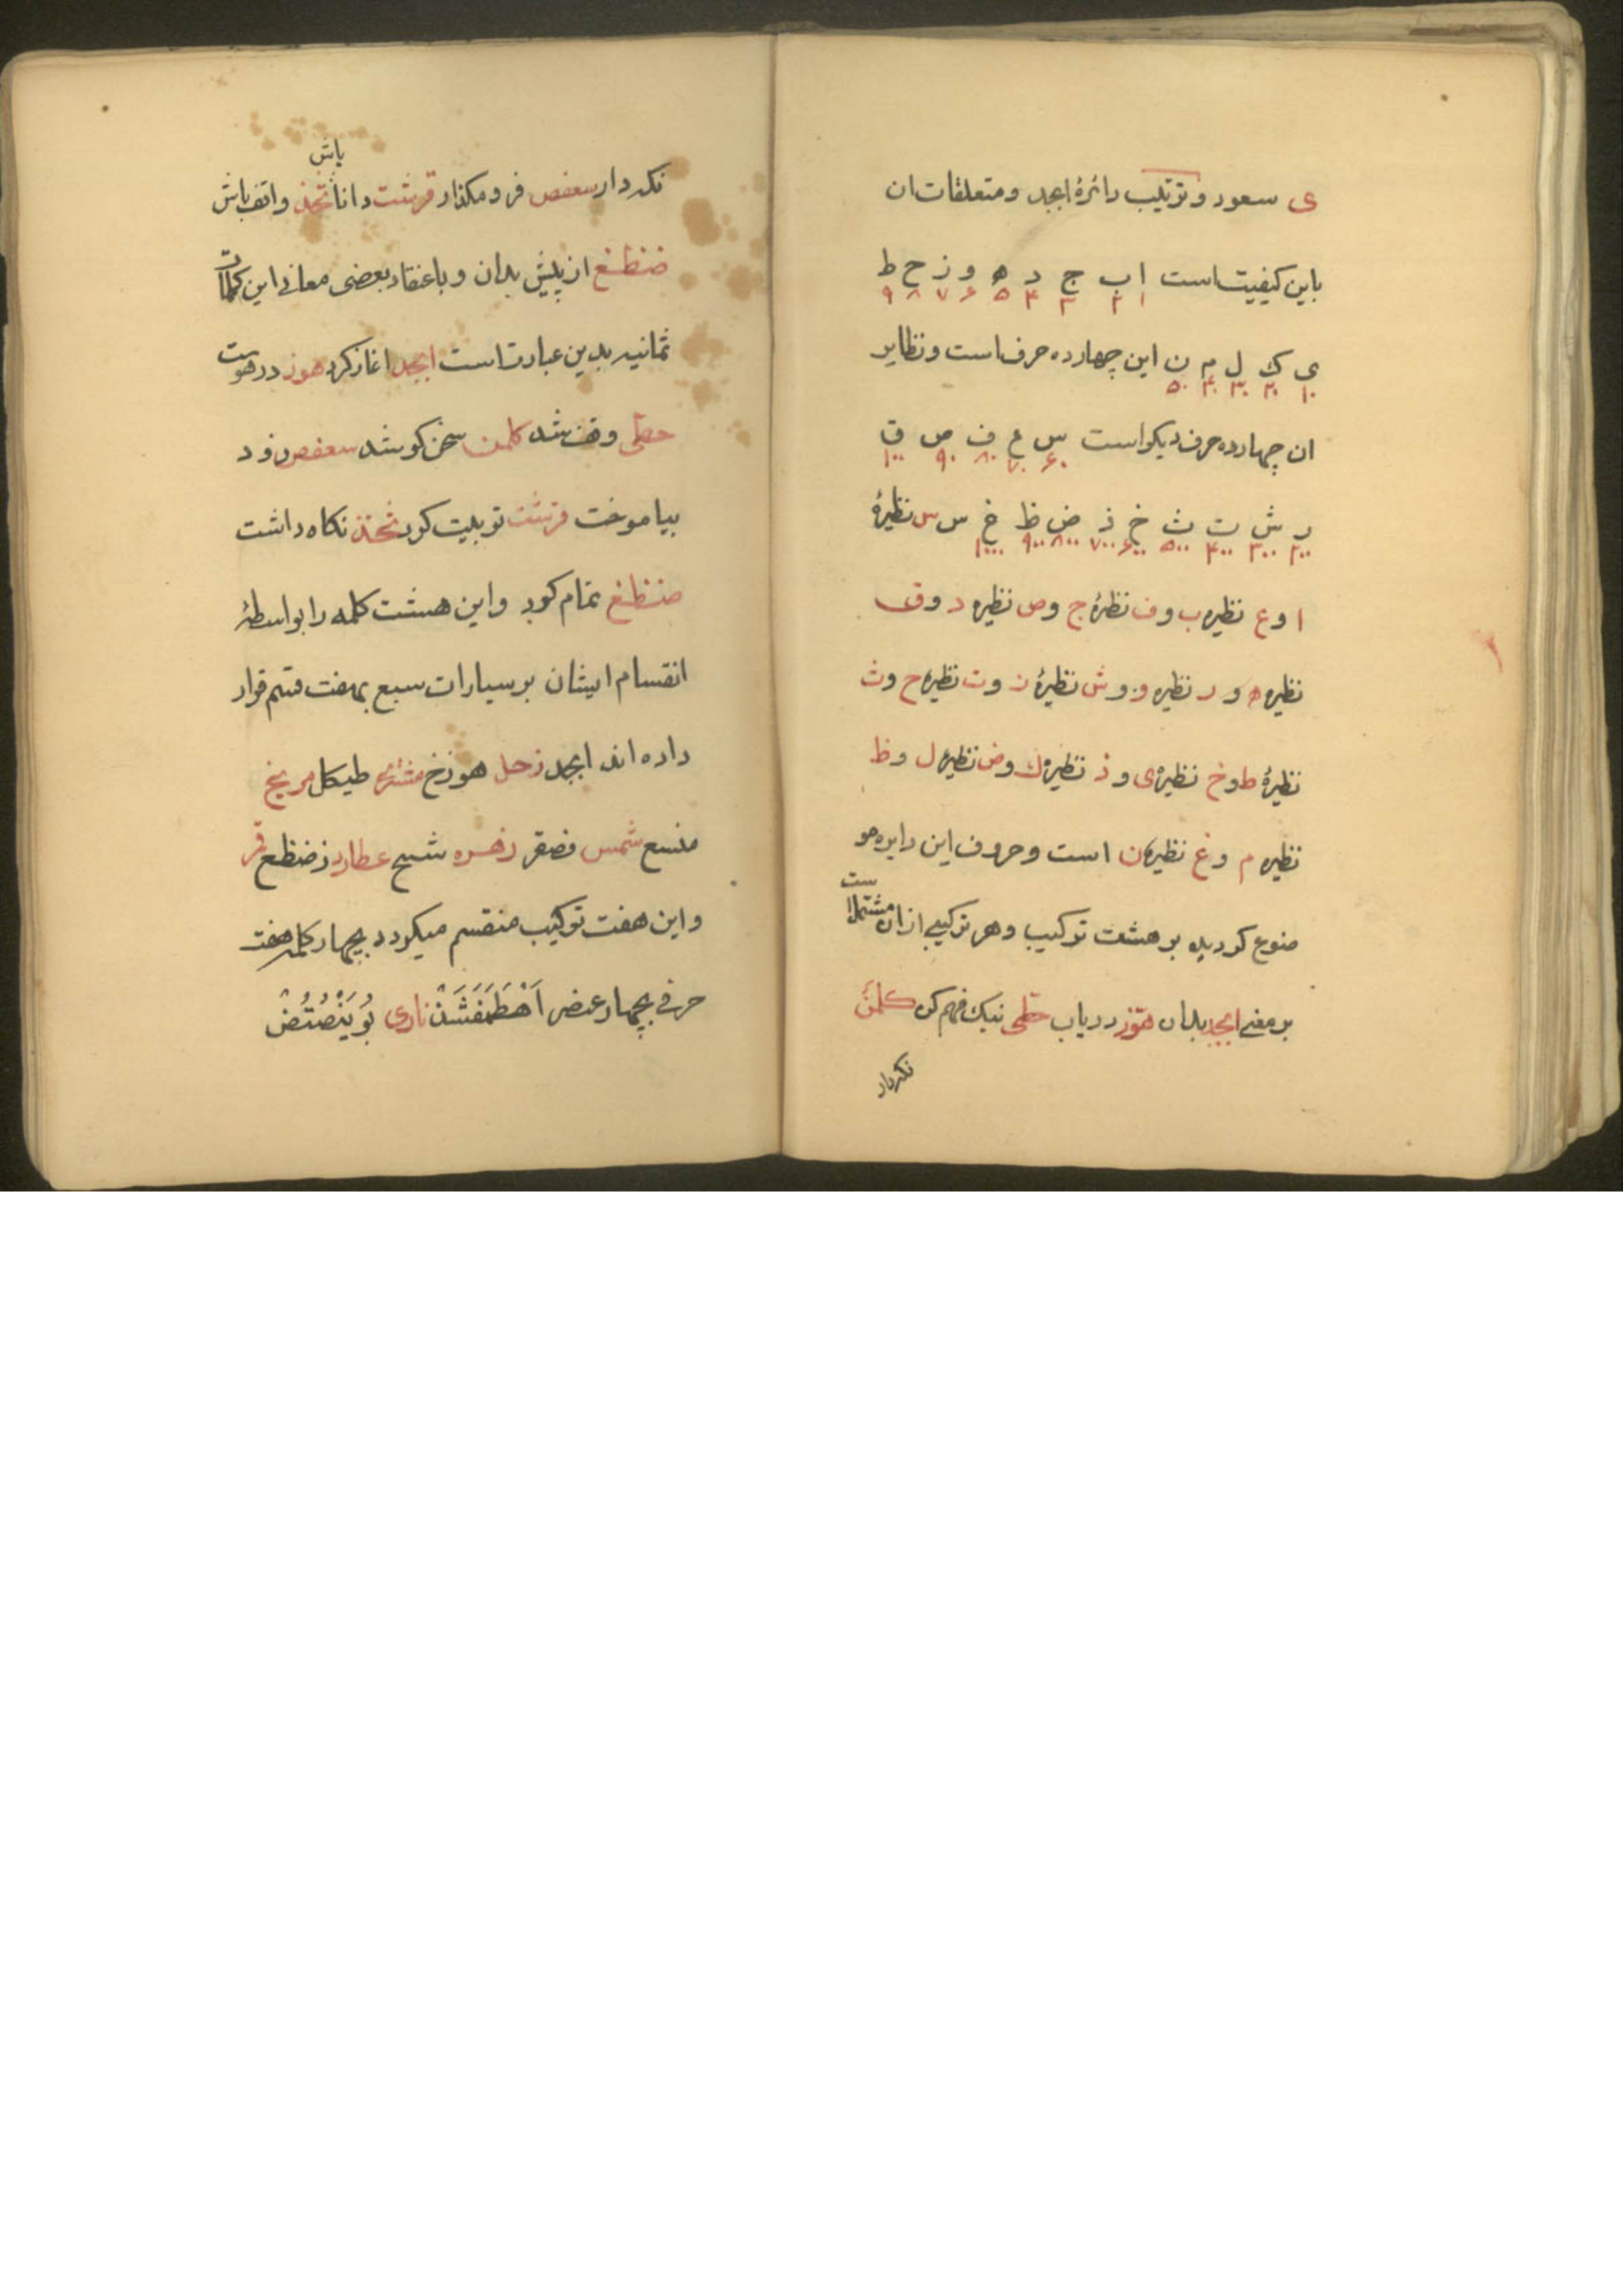 ی سعود و ترتیب دائرهٔ ابجد و متعلقات ان
باین کیفیت است ا ب ج د ه و ز ح ط
۱ ۲ ۳ ۴ ۵ ۶ ۷ ۸ ۹
ی ک ل م ن این چهارده حرف است و نظایر
۱۰ ۲۰ ۳۰ ۴۰ ۵۰
ان چهارده حرف دیکر است س ع ف ص ق
۶۰ ۷۰ ۸۰ ۹۰ ۱۰۰
ر ش ت ث خ ذ ض ظ غ س س نظیرهٔ
۲۰۰ ۳۰۰ ۴۰۰ ۵۰۰ ۶۰۰ ۷۰۰ ۸۰۰ ۹۰۰ ۱۰۰۰
ا و ع نظیره ب و ف نظرهٔ ج و ص نظیره د و ق
نظیره ه و ر نظیره و و ش نظیرهٔ ز و ت نظیره ح و ث
نظیرهٔ ط و خ نظیره ی و ذ نظیره ک و ض نظیره ل و ظ
نظیره م و غ نظیره ن است و حروف این دایره مو
ضوع کردیده بر هشت ترکیب و هر ترکیبی از ان مشتمل است
بر معنی ابجد بدان هوّز دریاب حطّی نیک فهم کن کلمن
نکهدار
نکهدار سعفص فرو مکذار قرشت دانا باش ثخذ واقف باش
ضظغ از پیش بدان و باعتقاد بعضی معانی این کلمات
ثمانیه بدین عبارت است ابجد اغاز کرد هوز در هوست
حطی وقف شد کلمن سخن کو شد سعفص زود
بیاموخت قرشت توبیت کرد ثخذ نکاه داشت
ضظغ تمام کرد و این هشت کلمه را بواسطهٔ
انقسام ایشان بر سیارات سبع بهفت قسم قرار
داده اند ابجد زحل هوزح مشتری طیکل مریخ
منسع شمس فصقر زهره شتثخ عطارد ذضظغ قمر
و این هفت ترکیب منقسم میکردد بچهار کلمه هفت
حرفی بچهار عنصر اَهْطَمَفَشَذْ ناری بُوَیَنْصُتُضْ